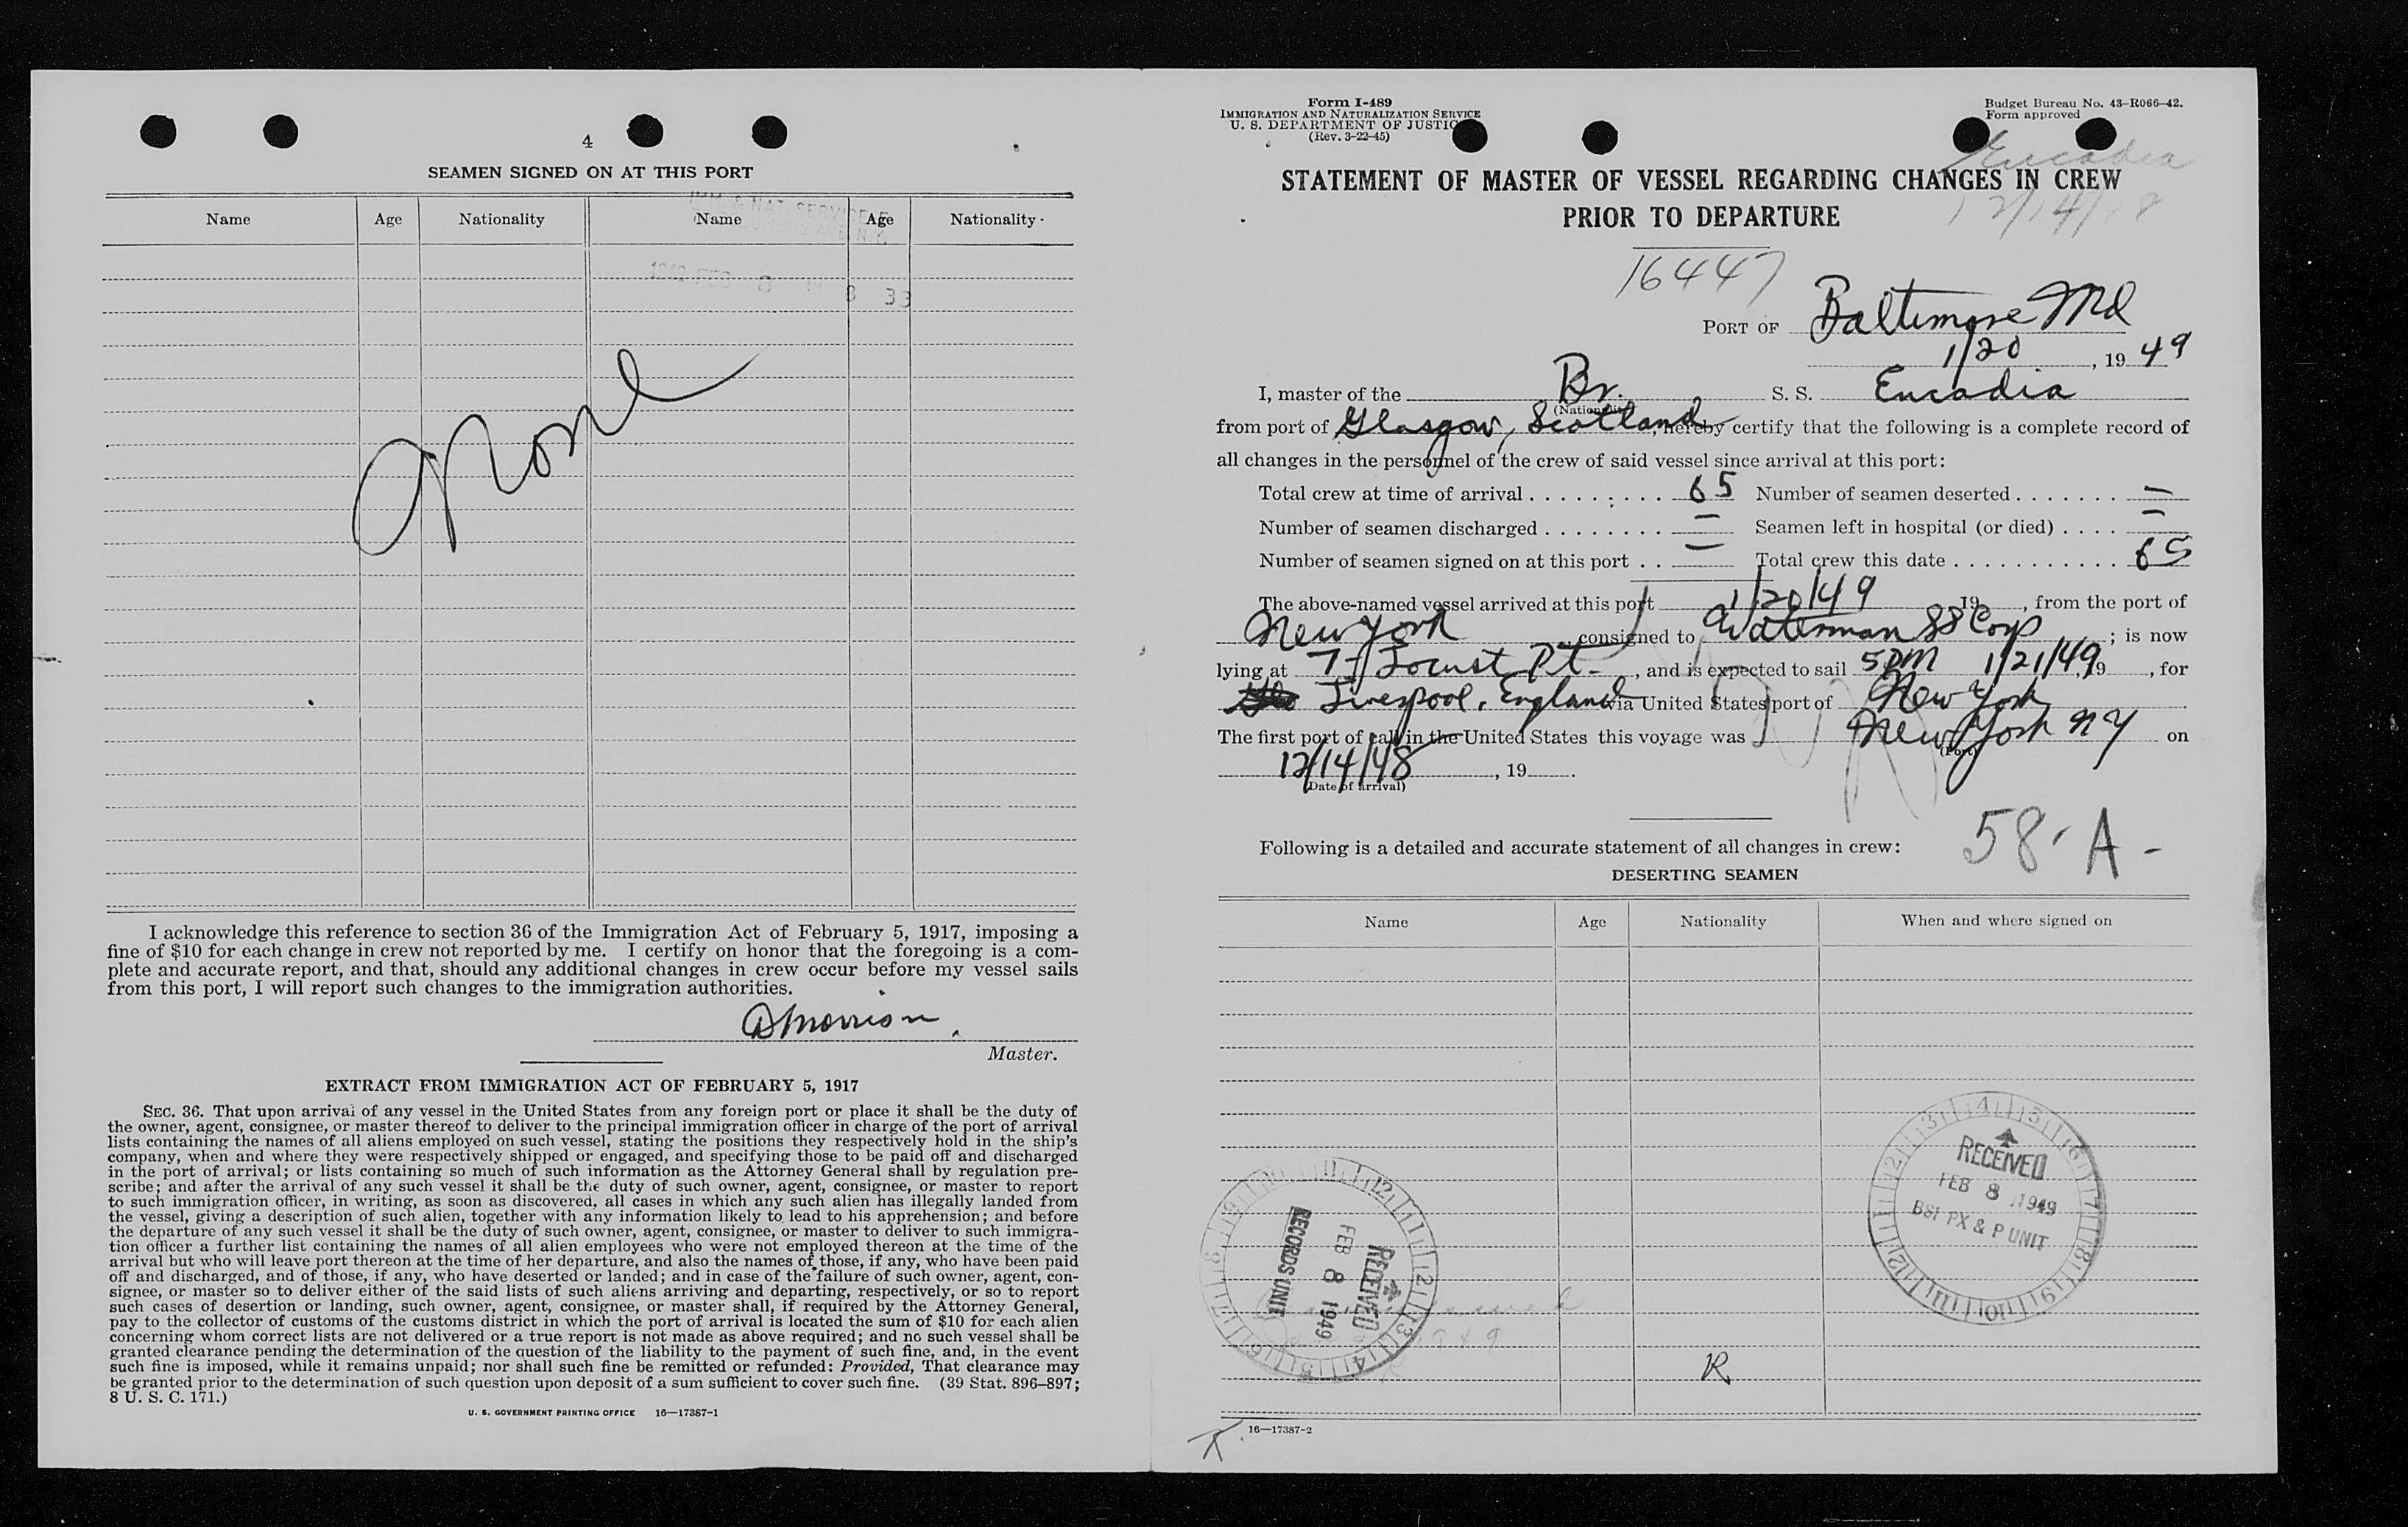 4
SEAMEN SIGNED ON AT THIS PORT
Name Age Nationality Name Age Nationality
FEB 8 8 33
None
I acknowledge this reference to section 36 of the Immigration Act of February 5, 1917, imposing a
fine of $10 for each change in crew not reported by me. I certify on honor that the foregoing is a com-
plete and accurate report, and that, should any additional changes in crew occur before my vessel sails
from this port, I will report such changes to the immigration authorities.
D Morrison
Master.
EXTRACT FROM IMMIGRATION ACT OF FEBRUARY 5, 1917
SEC. 36. That upon arrival of any vessel in the United States from any foreign port or place it shall be the duty of
the owner, agent, consignee, or master thereof to deliver to the principal immigration officer in charge of the port of arrival
lists containing the names of all aliens employed on such vessel, stating the positions they respectively hold in the ship's
company, when and where they were respectively shipped or engaged, and specifying those to be paid off and discharged
in the port of arrival; or lists containing so much of such information as the Attorney General shall by regulation pre-
scribe; and after the arrival of any such vessel it shall be the duty of such owner, agent, consignee, or master to report
to such immigration officer, in writing, as soon as discovered, all cases in which any such alien has illegally landed from
the vessel, giving a description of such alien, together with any information likely to lead to his apprehension; and before
the departure of any such vessel it shall be the duty of such owner, agent, consignee, or master to deliver to such immigra-
tion officer a further list containing the names of all alien employees who were not employed thereon at the time of the
arrival but who will leave port thereon at the time of her departure, and also the names of those, if any, who have been paid
off and discharged, and of those, if any, who have deserted or landed; and in case of the failure of such owner, agent, con-
signee, or master so to deliver either of the said lists of such aliens arriving and departing, respectively, or so to report
such cases of desertion or landing, such owner, agent, consignee, or master shall, if required by the Attorney General,
pay to the collector of customs of the customs district in which the port of arrival is located the sum of $10 for each alien
concerning whom correct lists are not delivered or a true report is not made as above required; and no such vessel shall be
granted clearance pending the determination of the question of the liability to the payment of such fine, and, in the event
such fine is imposed, while it remains unpaid; nor shall such fine be remitted or refunded: Provided, That clearance may
be granted prior to the determination of such question upon deposit of a sum sufficient to cover such fine. (39 Stat. 896–897;
8 U. S. C. 171.)
U. S. GOVERNMENT PRINTING OFFICE 16—17387-1
Form I-489
IMMIGRATION AND NATURALIZATION SERVICE
U. S. DEPARTMENT OF JUSTIC
(Rev. 3-22-45)
Budget Bureau No. 43-R066-42.
Form approved
Eucadia
12/14/48
STATEMENT OF MASTER OF VESSEL REGARDING CHANGES IN CREW
PRIOR TO DEPARTURE
16447
PORT OF Baltimore Md
1/20, 19 49
I, master of the Br. S. S. Eucadia
(Nationality)
from port of Glasgow, Scotland, hereby certify that the following is a complete record of
all changes in the personnel of the crew of said vessel since arrival at this port:
Total crew at time of arrival . . . . . . . . . . 65 Number of seamen deserted . . . . . . . —
Number of seamen discharged . . . . . . . . — Seamen left in hospital (or died) . . . . —
Number of seamen signed on at this port . . — Total crew this date . . . . . . . . . . . 65
The above-named vessel arrived at this port 1/20/49 19, from the port of
New York, consigned to Waterman SS Corp; is now
lying at 7- Locust Pt., and is expected to sail 5PM 1/21/49, 19, for
Liverpool, England via United States port of New York
The first port of call in the United States this voyage was New York NY on
(Port)
12/14/48, 19.
(Date of arrival)
58'A-
Following is a detailed and accurate statement of all changes in crew:
DESERTING SEAMEN
Name Age Nationality When and where signed on
RECEIVED
FEB 8 1949
BSI PX & P UNIT
RECEIVED
FEB 8 1949
RECORDS UNIT
R
16—17387-2